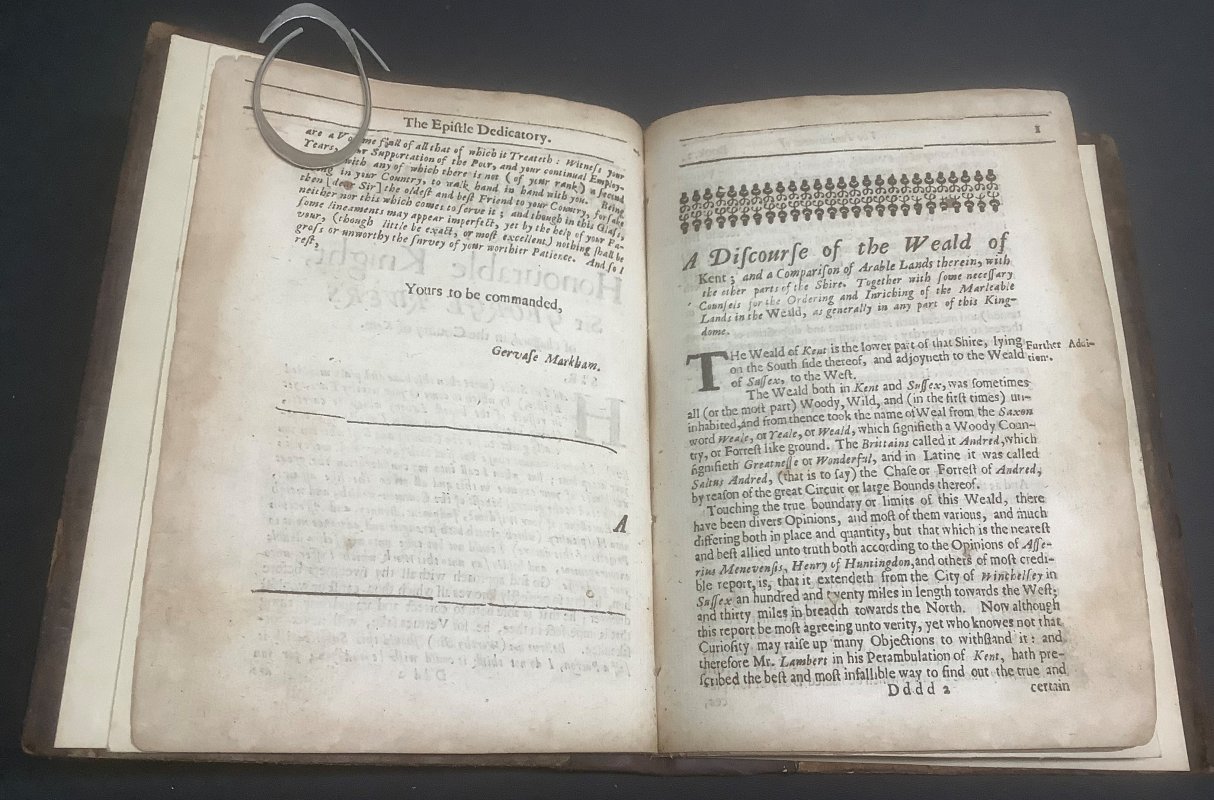 The Epiſtle Dedicatory.
are a me full of all that of which it Treateth : Witneſs your
Years, Supportation of the Poor, and your continual Employ-
with any of which there is not (of your rank) a ſecond
in your Country, to walk hand in hand with you. Being
then [dear Sir] the oldeſt and beſt Friend to your Country, forſake
neither nor this which comes to ſerve it ; and though in this Glaſs,
ſome lineaments may appear imperfect, yet by the help of your Fa-
vour, (though little be exact, or moſt excellent) nothing ſhall be
groſs or unworthy the ſurvey of your worthier Patience. And ſo I
reſt,
Yours to be commanded,
Gervaſe Markham.
A
1
A Diſcourſe of the Weald of
Kent ; and a Compariſon of Arable Lands therein, with
the other parts of the Shire. Together with ſome neceſſary
Counſels for the Ordering and Inriching of the Marleable
Lands in the Weald, as generally in any part of this King-
dome.
THe Weald of Kent is the lower part of that Shire, lying
on the South ſide thereof, and adjoyneth to the Weald
of Suſſex, to the Weſt.
Farther Addi-
tion.
The Weald both in Kent and Suſſex, was ſometimes
all (or the moſt part) Woody, Wild, and (in the firſt times) un-
inhabited, and from thence took the name of Weal from the Saxon
word Weale, or Yeale, or Weald, which ſignifieth a Woody Coun-
try, or Forreſt like ground. The Brittains called it Andred, which
ſignifieth Greatneſſe or Wonderful, and in Latine it was called
Saltus Andred, (that is to ſay) the Chaſe or Forreſt of Andred,
by reaſon of the great Circuit or large Bounds thereof.
Touching the true boundary or limits of this Weald, there
have been divers Opinions, and moſt of them various, and much
differing both in place and quantity, but that which is the neareſt
and beſt allied unto truth both according to the Opinions of Aſſe-
rius Menevenſis, Henry of Huntingdon, and others of moſt credi-
ble report, is, that it extendeth from the City of Winchelſey in
Suſſex an hundred and twenty miles in length towards the Weſt;
and thirty miles in breadth towards the North. Now although
this report be moſt agreeing unto verity, yet who knowes not that
Curioſity may raiſe up many Objections to withſtand it : and
therefore Mr. Lambert in his Perambulation of Kent, hath pre-
ſcribed the beſt and moſt infallible way to find out the true and
Dddd 2 certain